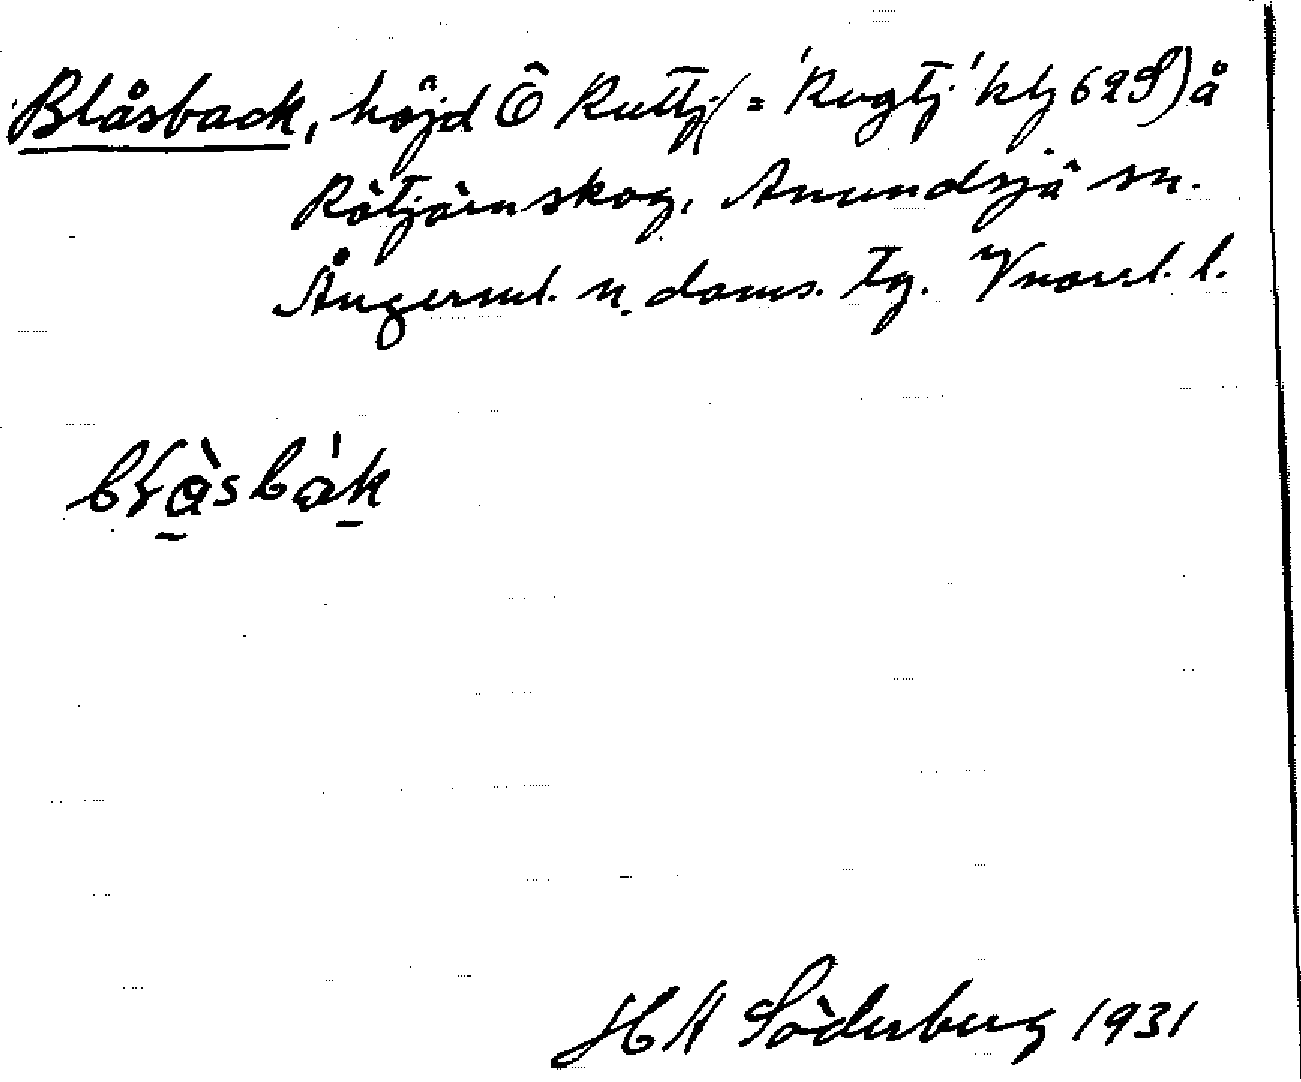 Blåsback, höjd Ö Ruttj (= 'Rugtj' kbl 62S) å
Rötjärnskog, Anundsjö sn.
Ångerml. n. doms. tg. Vnorrl. l.
blåsbák
H A Söderberg 1931